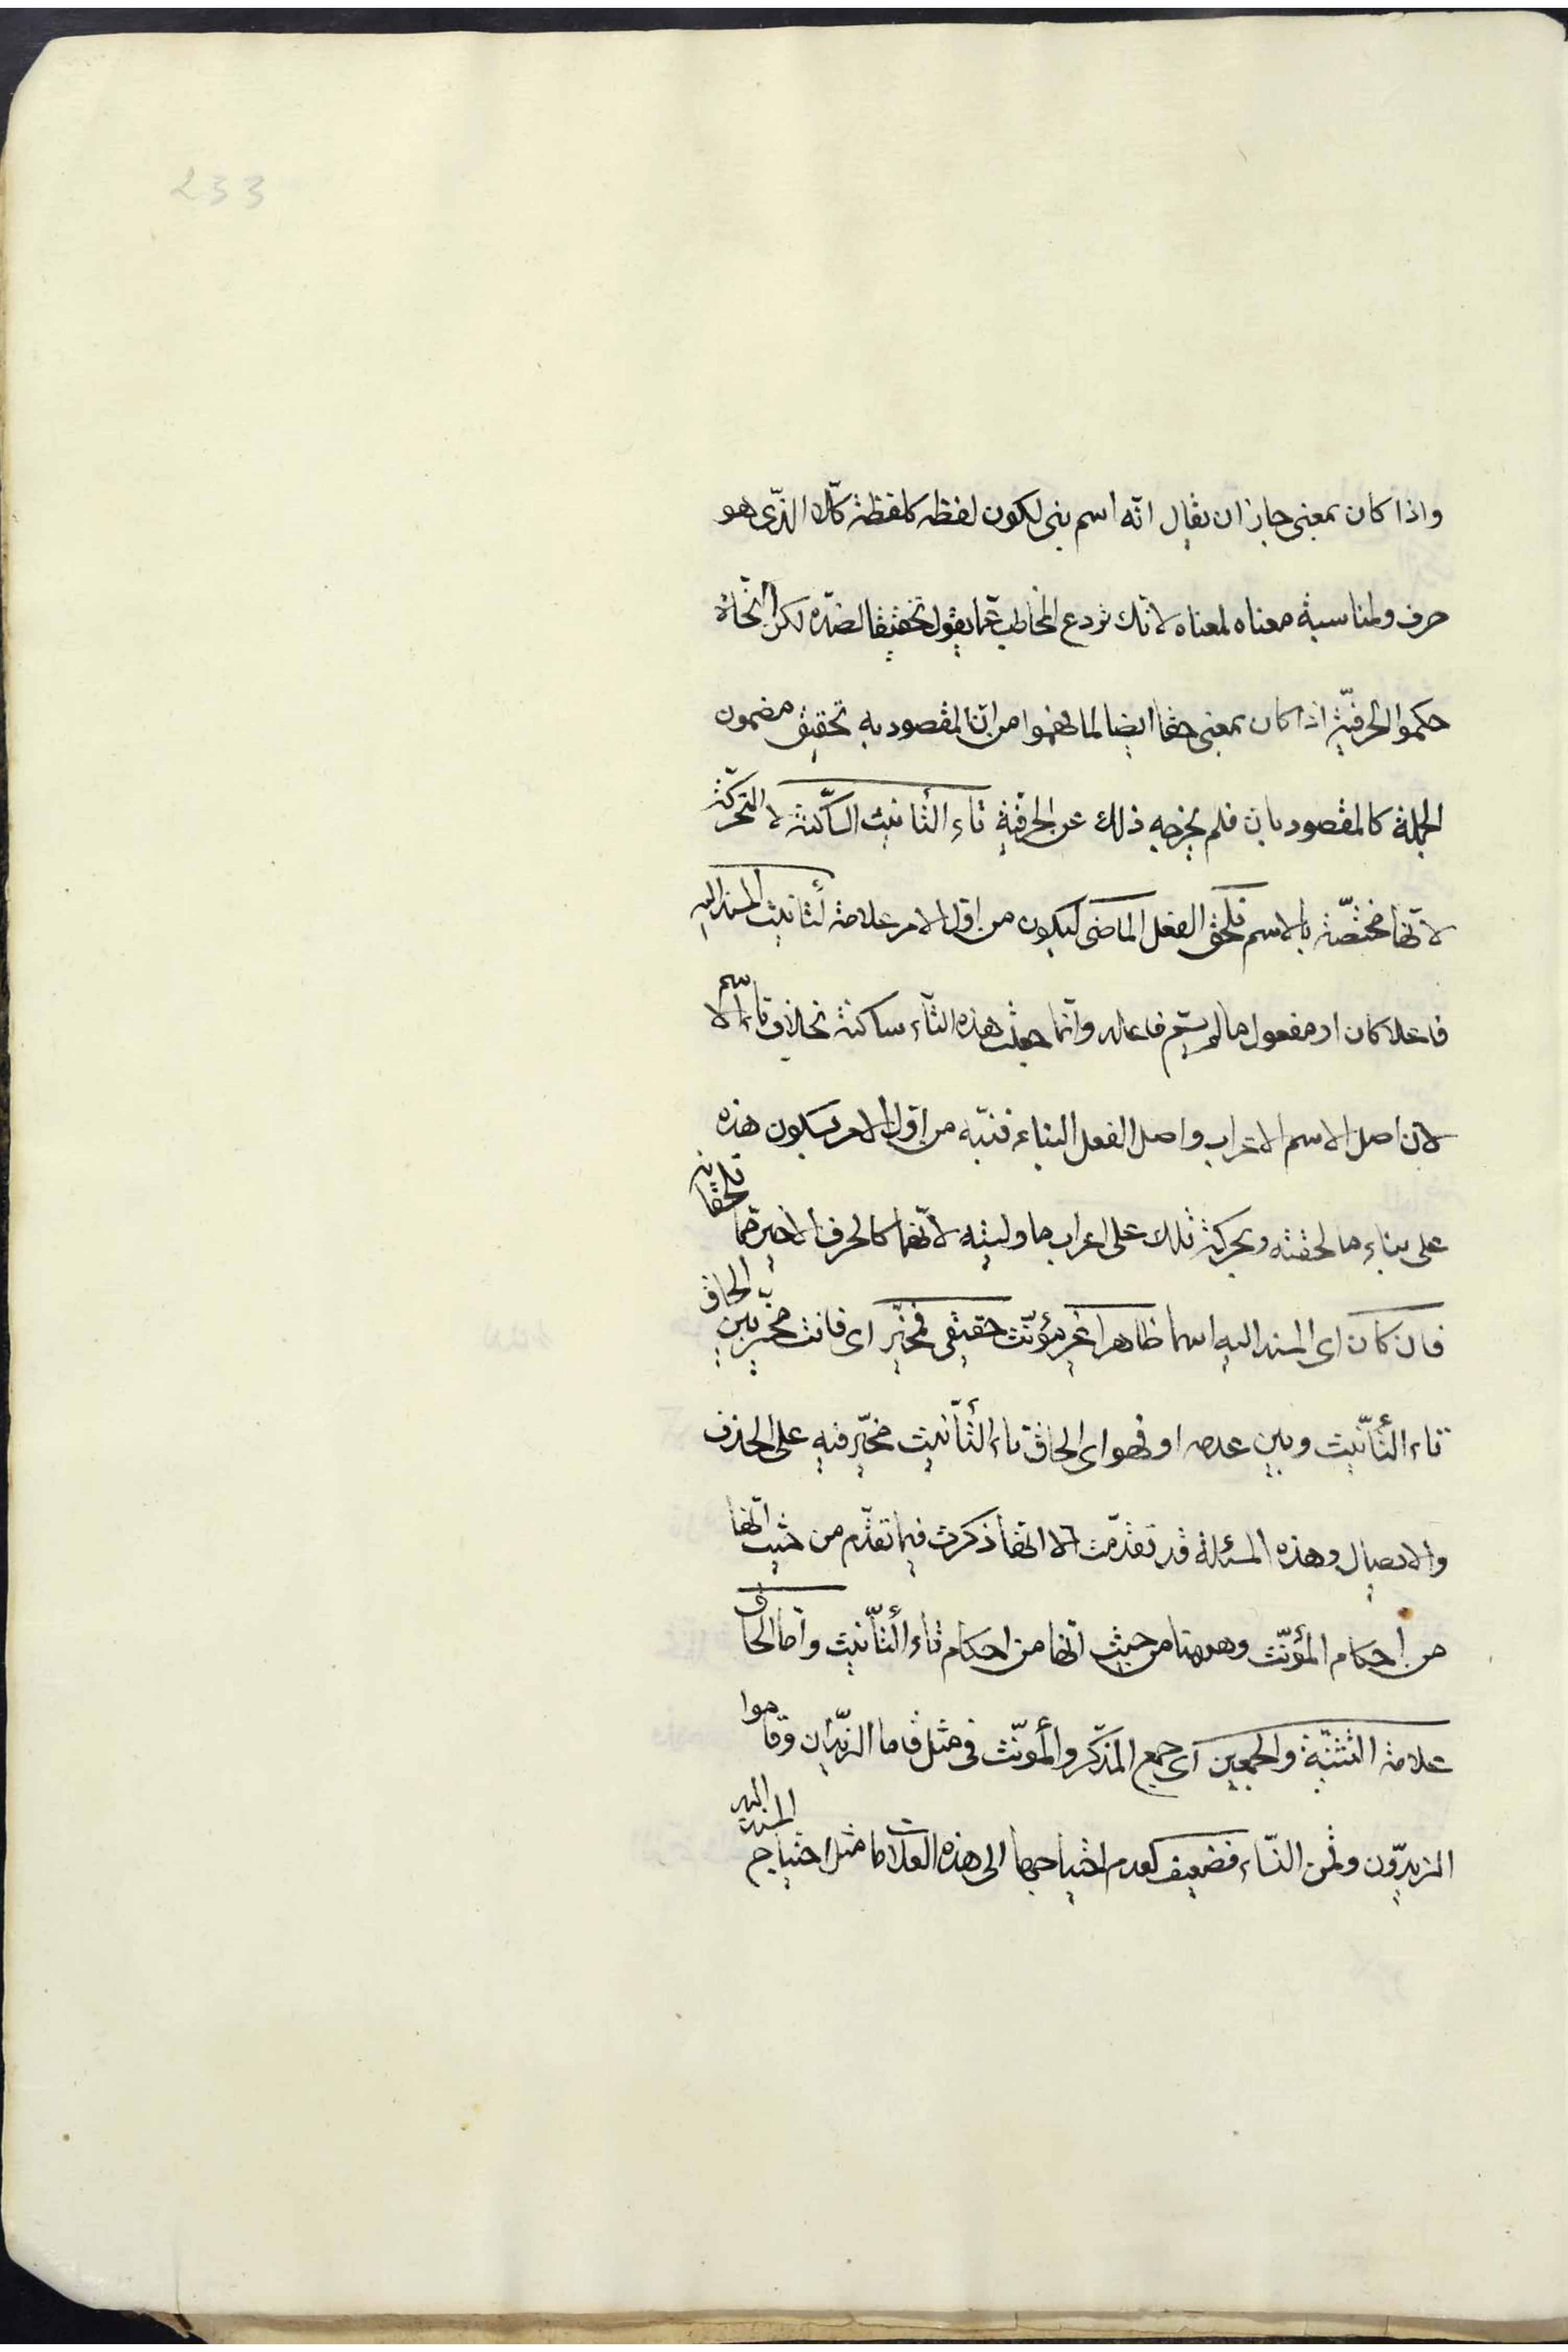 233
واذا كان بمعنى جاز ان يقال انّه اسم بنى لكون لفظه كلفظة كلّا الذّى هو
حرف ولمناسبة معناه لمعناه لانّك تردع المخاطب عمّا يقول تحقيقا لضدّه لكن النّحاة
حكموا بالحرفيّة اذا كان بمعنى حقا ايضا لما فهموا من انّ المقصود به تحقيق مضمون
الجملة كالمقصود بان فلم يخرجه ذلك عن الحرفيّة تاء التأنيث السّاكنة لا المتحرّكة
لانّها مختصّة بالاسم تلحق الفعل الماضى ليكون من اوّل الامر علامة لتأنيث المسند اليه
فاعلا كان او مفعول ما لم يسمّ فاعله وانّما جعلت هذه التّاء ساكنة بخلاف تاء الاسم
لانّ اصل الاسم الاعراب واصل الفعل البناء فنبّه من اوّل الامر بسكون هذه
على بناء ما لحقته وبحركة تلك على اعراب ما وليته لانّهما كالحرف الاخير ممّا تلحقان به
فان كان اى المسند اليه اسما ظاهرا غير مؤنّث حقيقى فمخيّر اى فانت مخيّر بين الحاق
تاء التّأنيث وبين عدمه او فهو اى الحاق تاء التّأنيث مخيّر فيه على الحذف
والايصال وهذه المسئلة قد تقدّمت الا انّها ذكرت فيما تقدّم من حيث انّها
من احكام المؤنّث وههنا من حيث انّها من احكام تاء التّأنيث وامّا الحاق
علامة التّثنيّة والجمعين اى جمع المذكّر والمؤنّث فى مثل قاما الزّيدان وقاموا
الزيدّون وقمن النّساء فضعيف لعدم احتياجهما الى هذه العلامات مثل احتياج المسند اليه